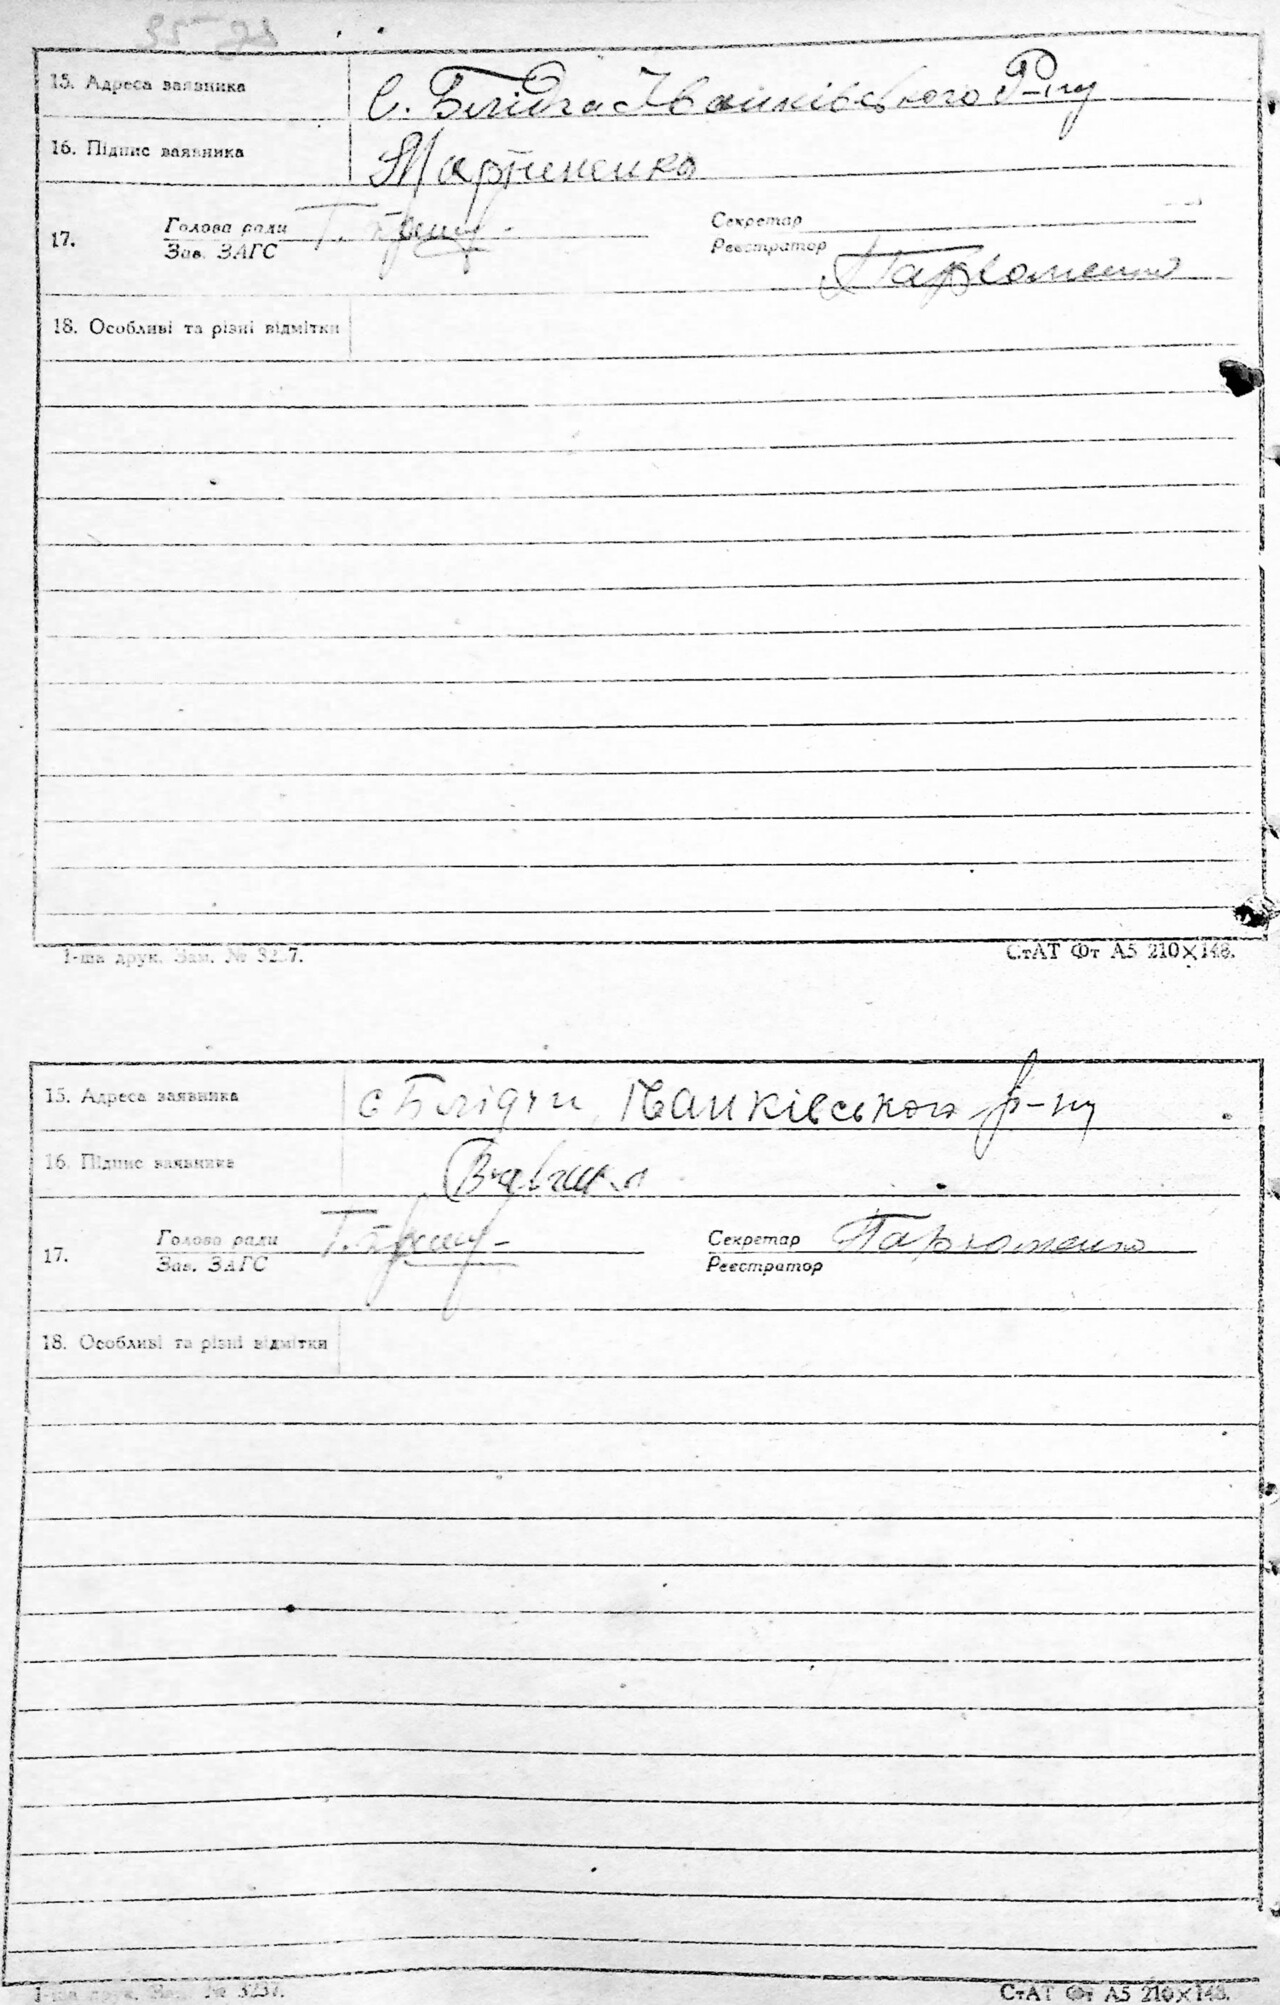 15. Адреса заявника С. Блідча Іванківського Р-ну
16. Підпис заявника Мартиненко
17. Голова ради Секретар
Зав. ЗАГС Реєстратор Пархоменко
18. Особливі та різні відмітки
1-ша друк. Зам. № 3237. СтАТ Фт А5 210×148.
15. Адреса заявника с Блідчи, Іванківського р-ну
16. Підпис заявника
17. Голова ради Секретар Пархоменко
Зав. ЗАГС Реєстратор
18. Особливі та різні відмітки
1-ша друк. Зам. № 3237. СтАТ Фт А5 210×148.